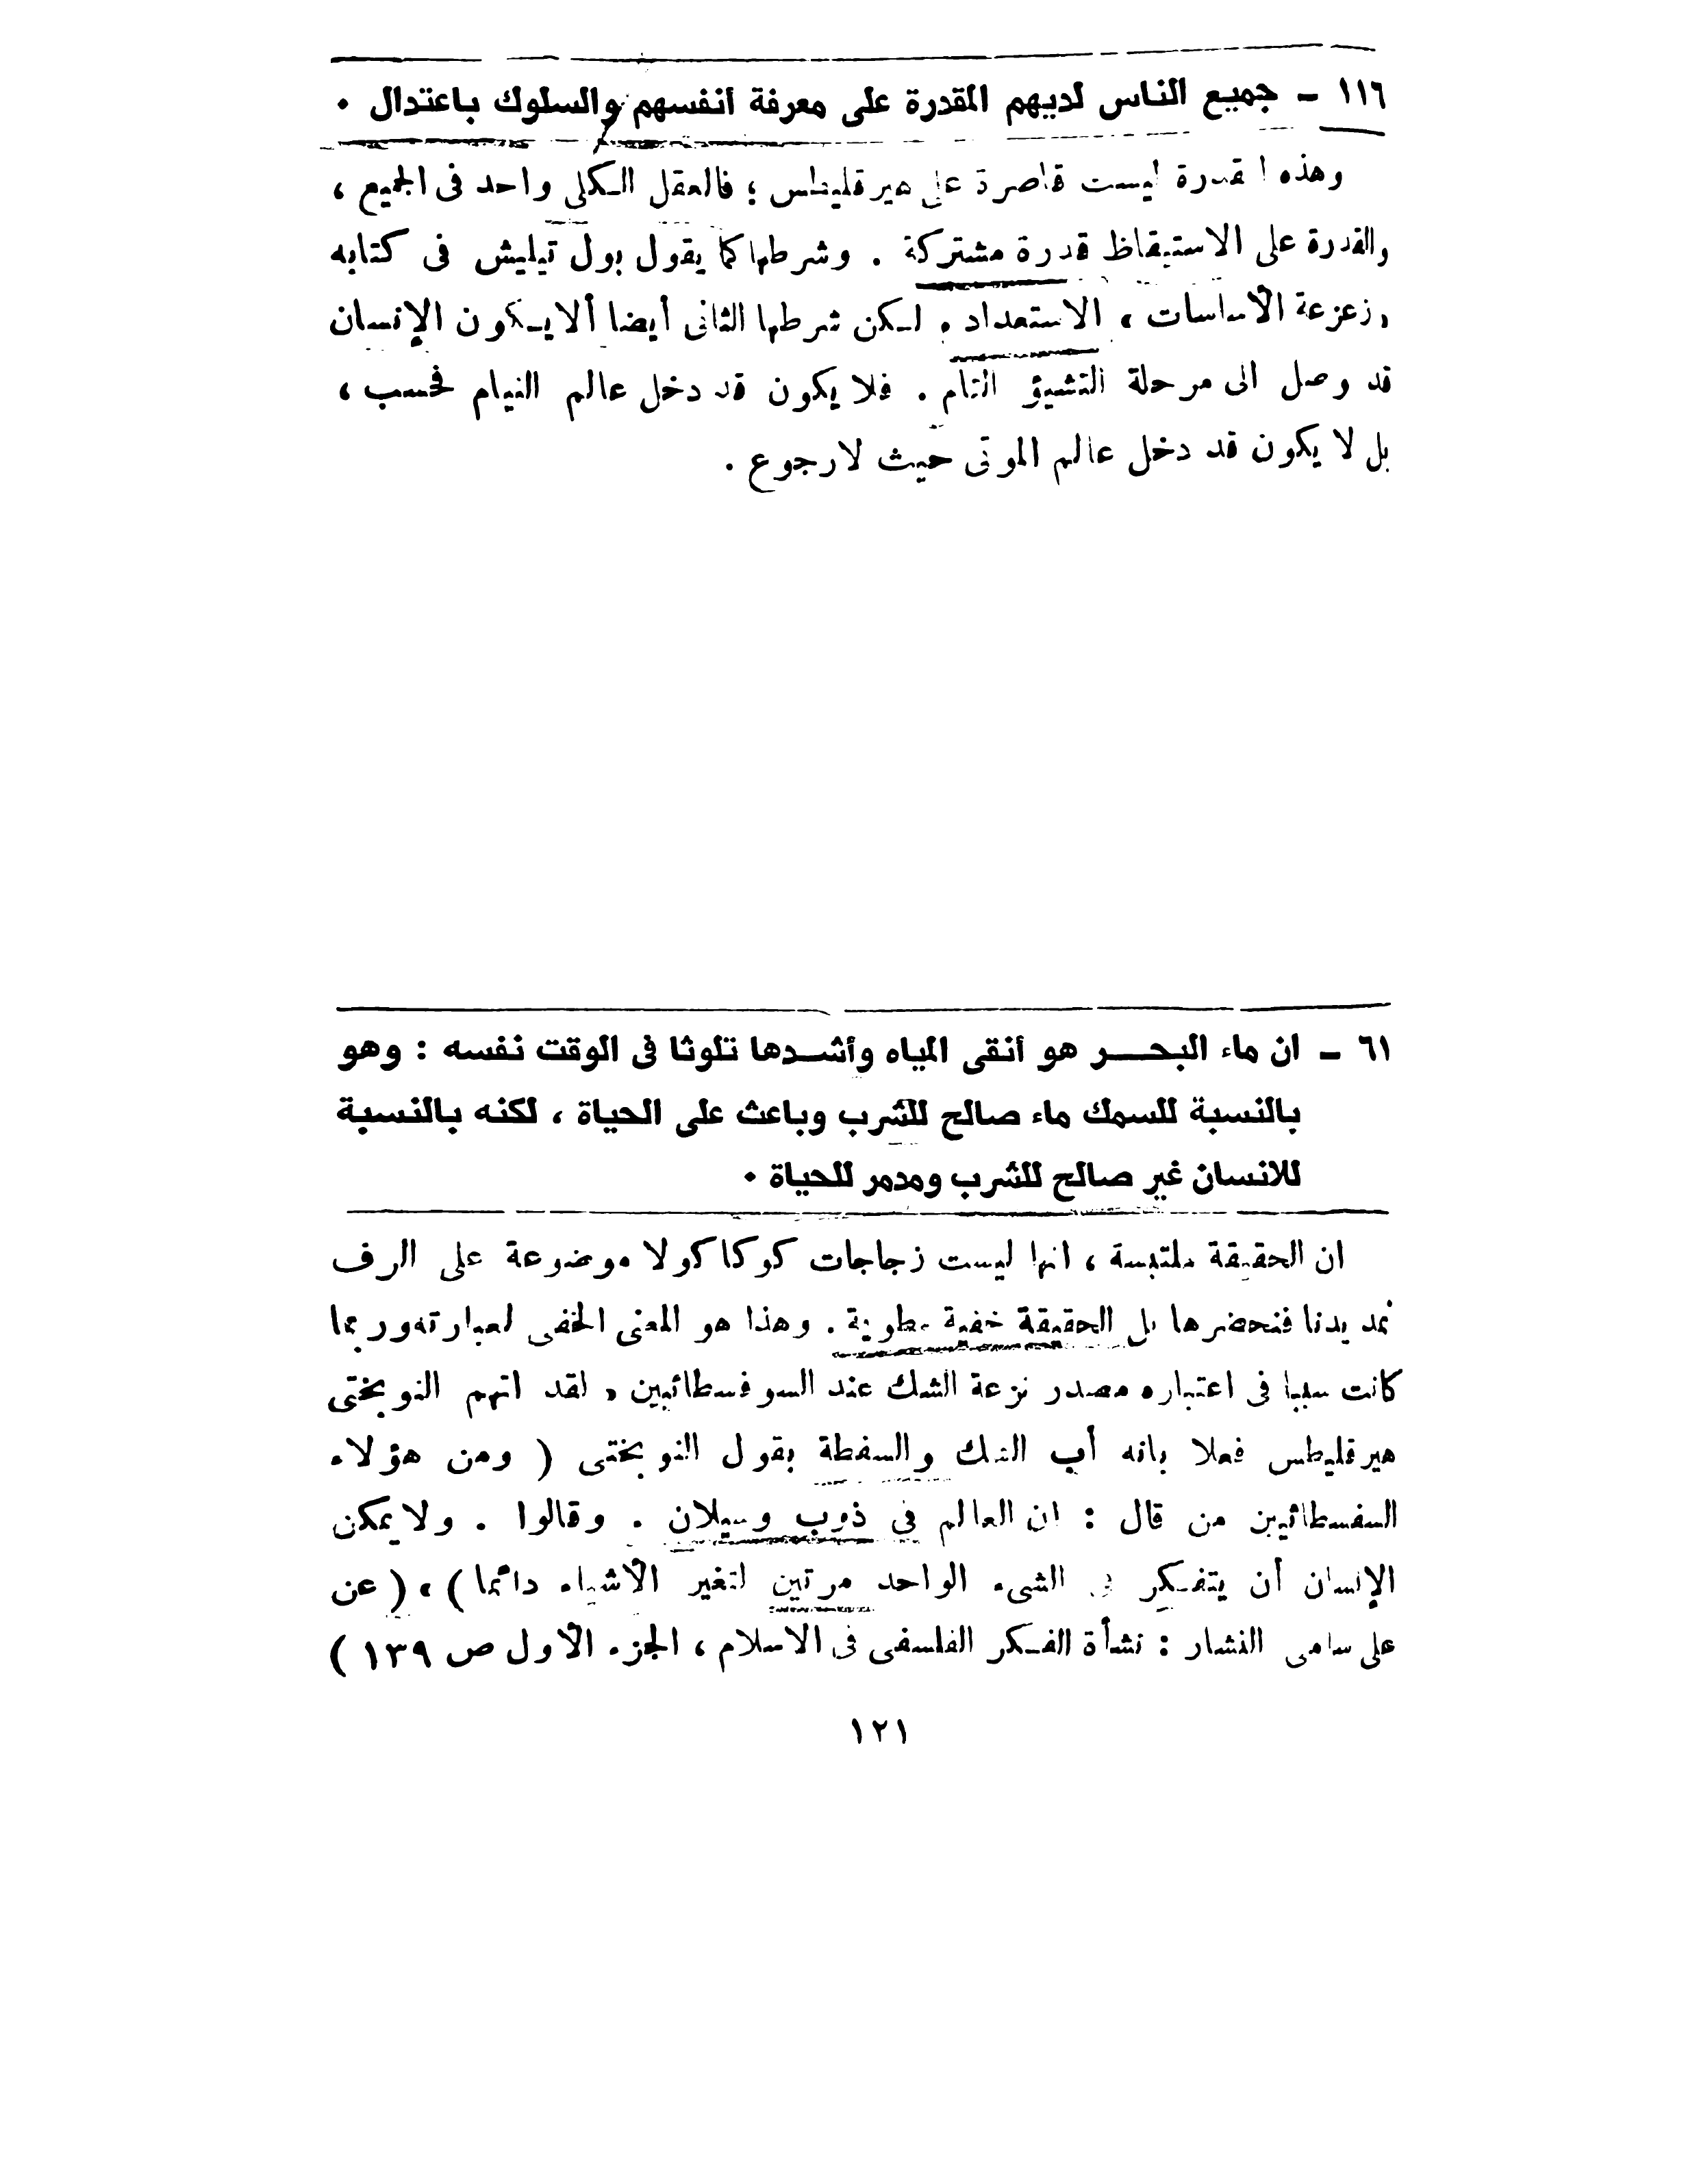 ١١٦ – جميع الناس لديهم المقدرة على معرفة أنفسهم والسلوك باعتدال .
وهذه القدرة ليست قاصرة على هيرقليطس ؛ فالعقل الكلى واحد فى الجميع ،
والقدرة على الاستيقاظ قدرة مشتركة . وشرطها كما يقول بول تيليش فى كتابه
« زعزعة الأساسات » الاستعداد . لكن شرطها الثانى أيضا ألا يكون الإنسان
قد وصل الى مرحلة التشيؤ التام . فلا يكون قد دخل عالم النيام فحسب ،
بل لا يكون قد دخل عالم الموتى حيث لارجوع .
٦١ – ان ماء البحر هو أنقى المياه وأشدها تلوثا فى الوقت نفسه : وهو
بالنسبة للسمك ماء صالح للشرب وباعث على الحياة ، لكنه بالنسبة
للانسان غير صالح للشرب ومدمر للحياة .
ان الحقيقة ملتبسة ، انها ليست زجاجات كوكاكولا موضوعة على الرف
نمد يدنا فنحضرها بل الحقيقة خفية مطوية . وهذا هو المعنى الخفى لعبارته وربما
كانت سببا فى اعتباره مصدر نزعة الشك عند السوفسطائيين ، لقد اتهم النوبختى
هيرقليطس فعلا بانه أب الشك والسفطة بقول النوبختى ( ومن هؤلاء
السفسطائيين من قال : ان العالم فى ذوب وسيلان . وقالوا . ولا يمكن
الإنسان أن يتفكر فى الشىء الواحد مرتين لتغير الأشياء دائما ) ، ( عن
على سامى النشار : نشأة الفكر الفلسفى فى الاسلام ، الجزء الأول ص ١٣٩ )
١٢١